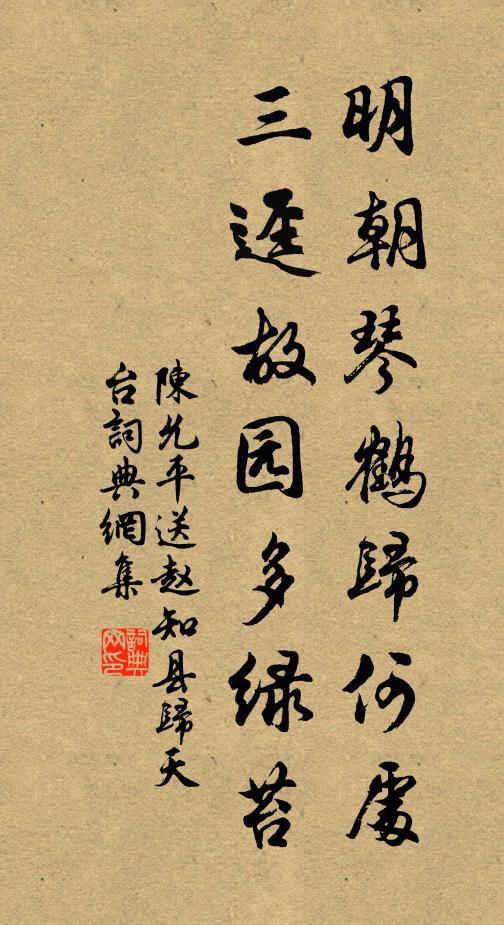 明朝琴鶴歸何處
三逕故园多绿苔
陳允平送赵知县歸天
台詞典網集
詞典网印